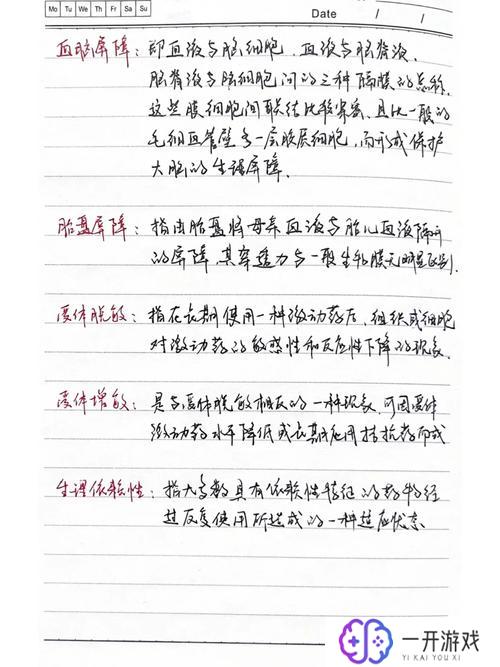 Mo Tu We Th Fr Sa Su
Date / /
血脑屏障：即血液与脑细胞、血液与脑脊液、
脑脊液与脑细胞间的三种隔膜的总称，
这些膜细胞间联结比较紧密，且比一般的
毛细血管壁多一层胶质细胞，而形成保护
大脑的生理屏障。
胎盘屏障：指由胎盘将母亲血液与胎儿血液隔开
的屏障，其穿透力与一般生物膜无明显区别。
受体脱敏：指在长期使用一种激动药后，组织或细胞
对激动药的敏感性和反应性下降的现象。
受体增敏：是与受体脱敏相反的一种现象，可因受体
激动药水平降低或长期应用拮抗药而成
生理依赖性：指大多数具有依赖性特征的药物经
过反复使用所造成的一种适应状态
一开游戏
YI KAI YOU XI